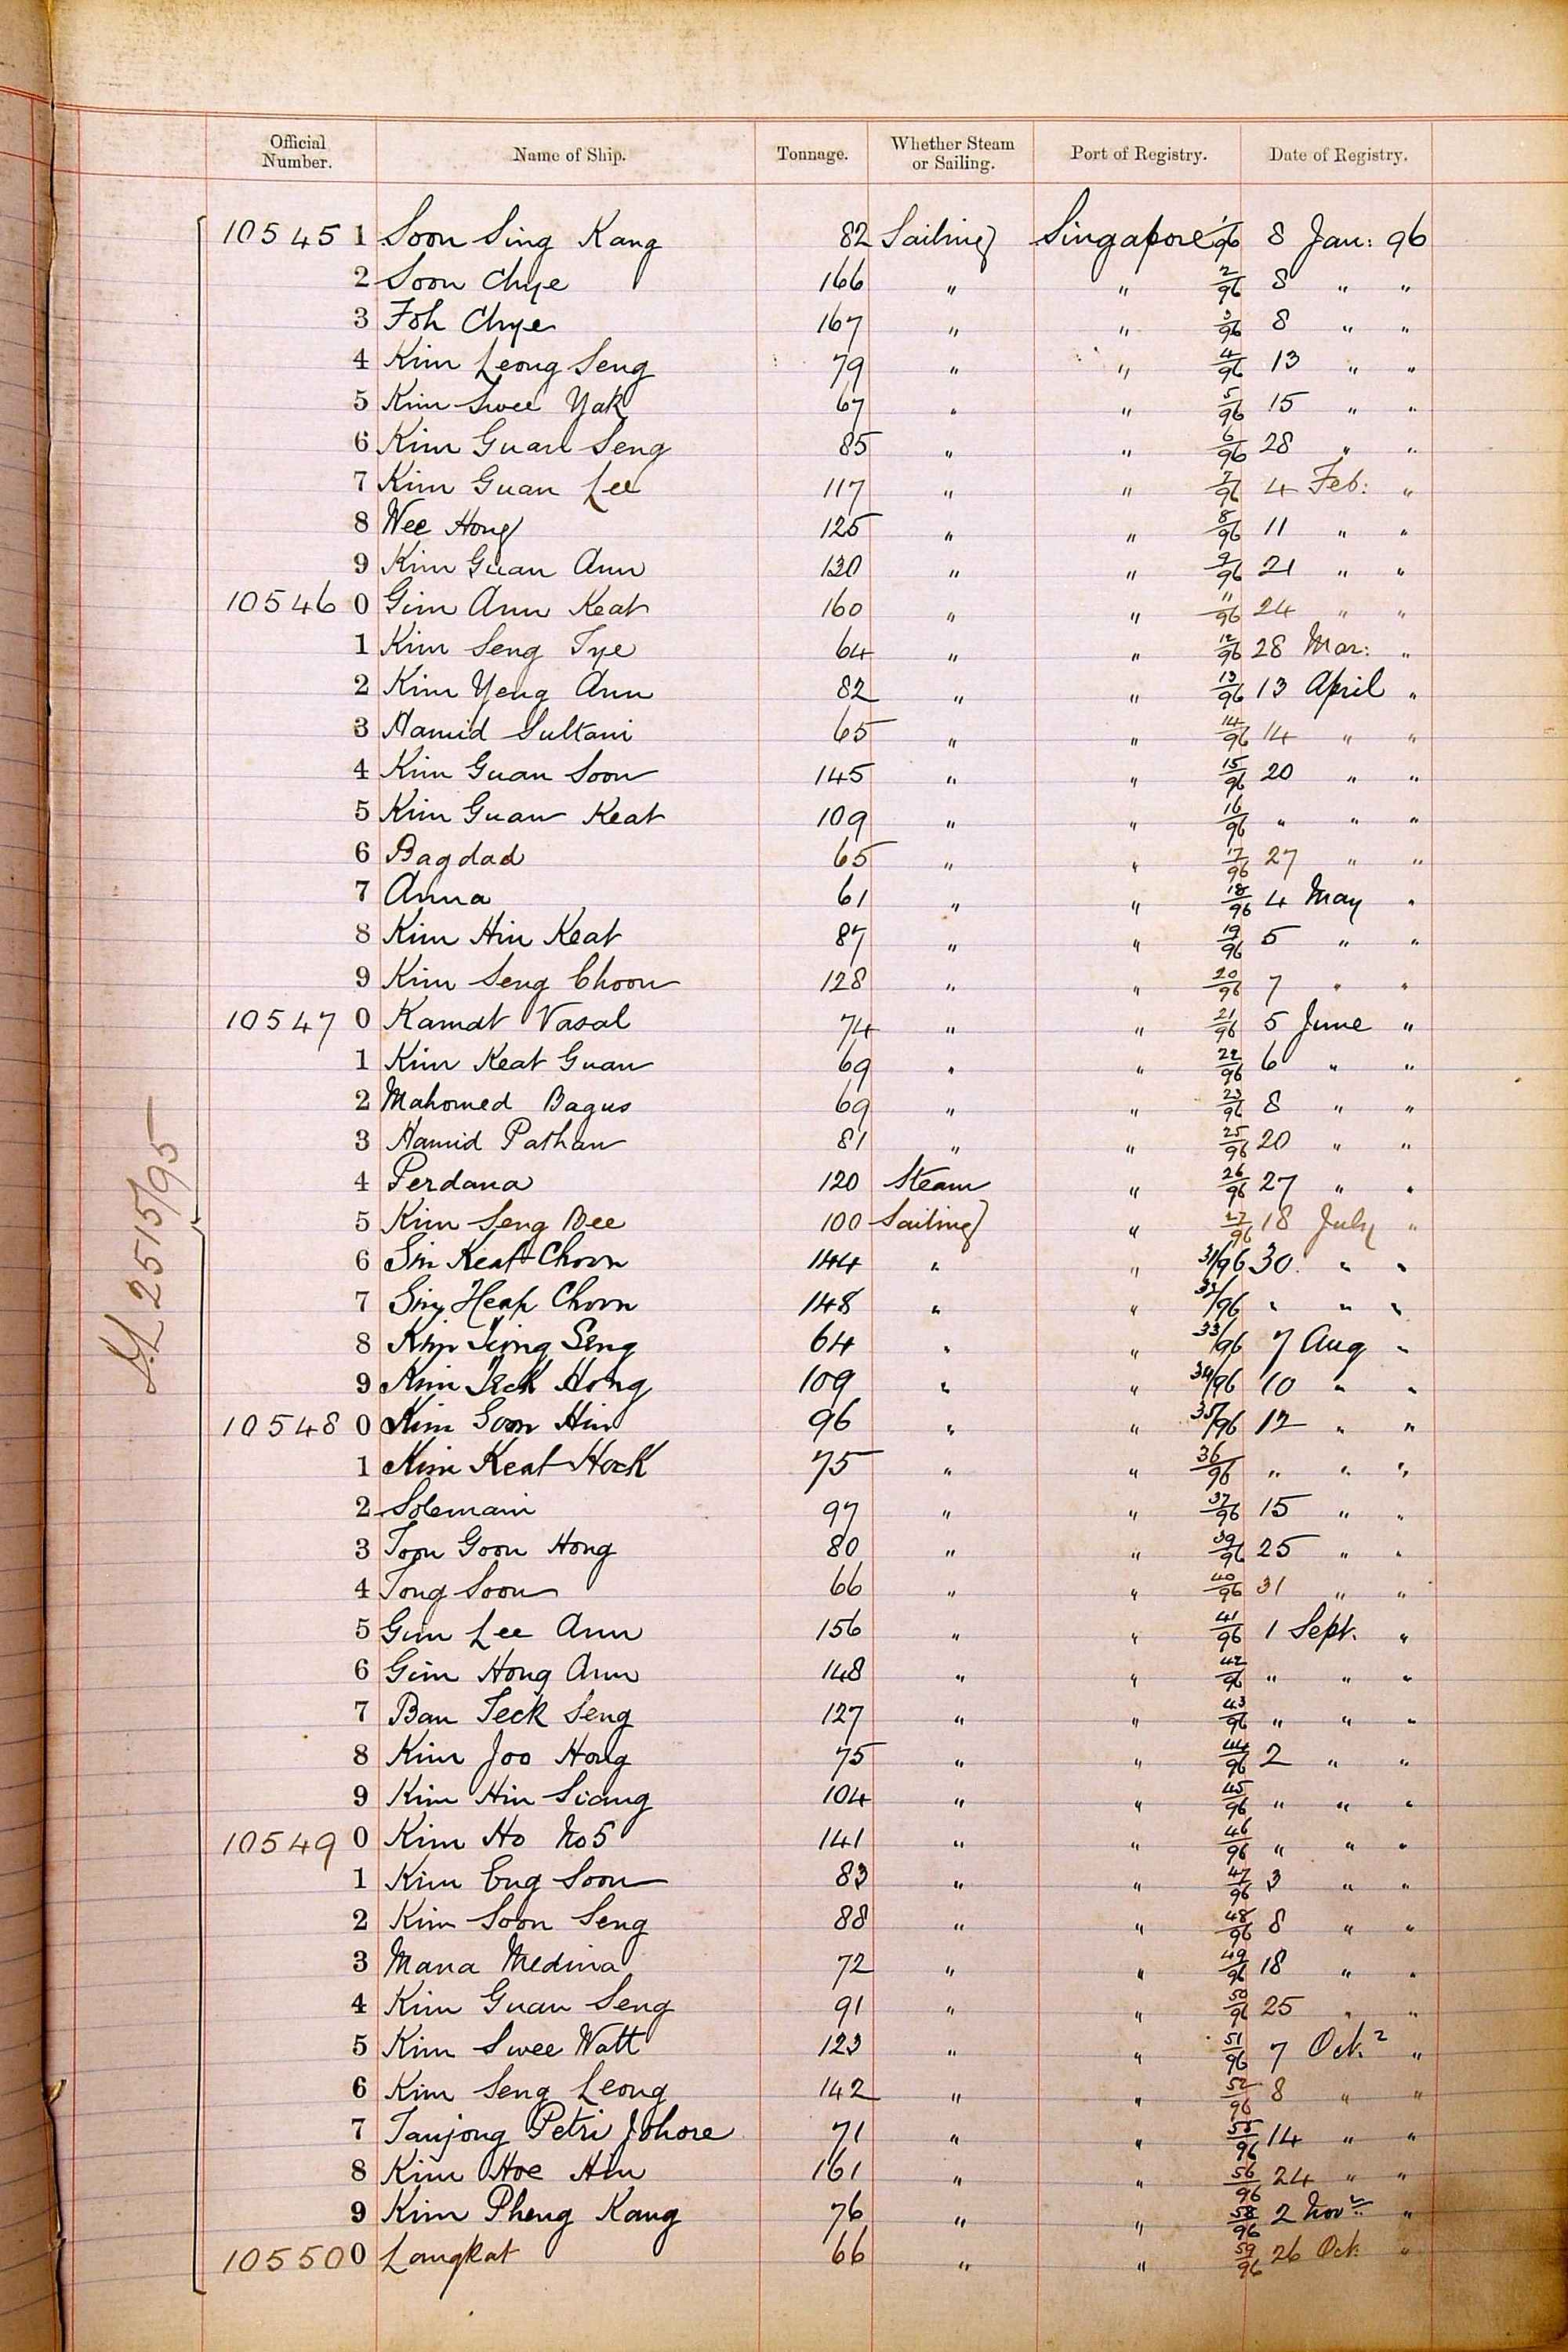 Official Number. Name of Ship. Tonnage. Whether Steam or Sailing. Port of Registry. Date of Registry.
10545 1 Soon Sing Kang 82 Sailing Singapore 1/96 8 Jan: 96
2 Soon Chye 166 " " 2/96 8 " "
3 Foh Chye 167 " " 3/96 8 " "
4 Kim Leong Seng 79 " " 4/96 13 " "
5 Kim Swee Yak 67 " " 5/96 15 " "
6 Kim Guan Seng 85 " " 6/96 28 " "
7 Kim Guan Lee 117 " " 7/96 4 Feb: "
8 Wee Hong 125 " " 8/96 11 " "
9 Kim Guan Ann 130 " " 9/96 21 " "
10546 0 Gim Ann Keat 160 " " 11/96 24 " "
1 Kim Seng Tye 64 " " 12/96 28 Mar: "
2 Kim Yeng Ann 82 " " 13/96 13 April "
3 Hamid Sultani 65 " " 14/96 14 " "
4 Kim Guan Soon 145 " " 15/96 20 " "
5 Kim Guan Keat 109 " " 16/96 " " "
6 Bagdad 65 " " 17/96 27 " "
7 Anna 61 " " 18/96 4 May "
8 Kim Hin Keat 87 " " 19/96 5 " "
9 Kim Seng Choon 128 " " 20/96 7 " "
10547 0 Kamat Vasal 74 " " 21/96 5 June "
1 Kim Keat Guan 69 " " 22/96 6 " "
2 Mahomed Bagus 69 " " 23/96 8 " "
3 Hamid Pathan 81 " " 25/96 20 " "
4 Perdana 120 Steam " 26/96 27 " "
5 Kim Seng Bee 100 Sailing " 27/96 18 July "
6 Sin Keat Choon 144 " " 31/96 30 " "
7 Sing Heap Choon 148 " " 32/96 " " "
8 Kim Tiong Seng 64 " " 33/96 7 Aug "
9 Kim Teck Hong 109 " " 34/96 10 " "
10548 0 Kim Soon Hin 96 " " 35/96 12 " "
1 Kim Keat Hock 75 " " 36/96 " " "
2 Solemain 97 " " 37/96 15 " "
3 Toon Goon Hong 80 " " 39/96 25 " "
4 Tong Soon 66 " " 40/96 31 " "
5 Gim Lee Ann 156 " " 41/96 1 Sept. "
6 Gim Hong Ann 148 " " 42/96 " " "
7 Ban Teck Seng 127 " " 43/96 " " "
8 Kim Joo Hong 75 " " 44/96 2 " "
9 Kim Hin Siang 104 " " 45/96 " " "
10549 0 Kim Ho No 5 141 " " 46/96 " " "
1 Kim Eng Soon 83 " " 47/96 3 " "
2 Kim Soon Seng 88 " " 48/96 8 " "
3 Mana Medina 72 " " 49/96 18 " "
4 Kim Guan Seng 91 " " 50/96 25 " "
5 Kim Swee Watt 123 " " 51/96 7 Oct. "
6 Kim Seng Leong 142 " " 52/96 8 " "
7 Tanjong Petri Johore 71 " " 55/96 14 " "
8 Kim Hoe Hin 161 " " 56/96 24 " "
9 Kim Pheng Kang 76 " " 58/96 2 Novr "
10550 0 Langkat 66 " " 59/96 26 Oct. "
2515/95